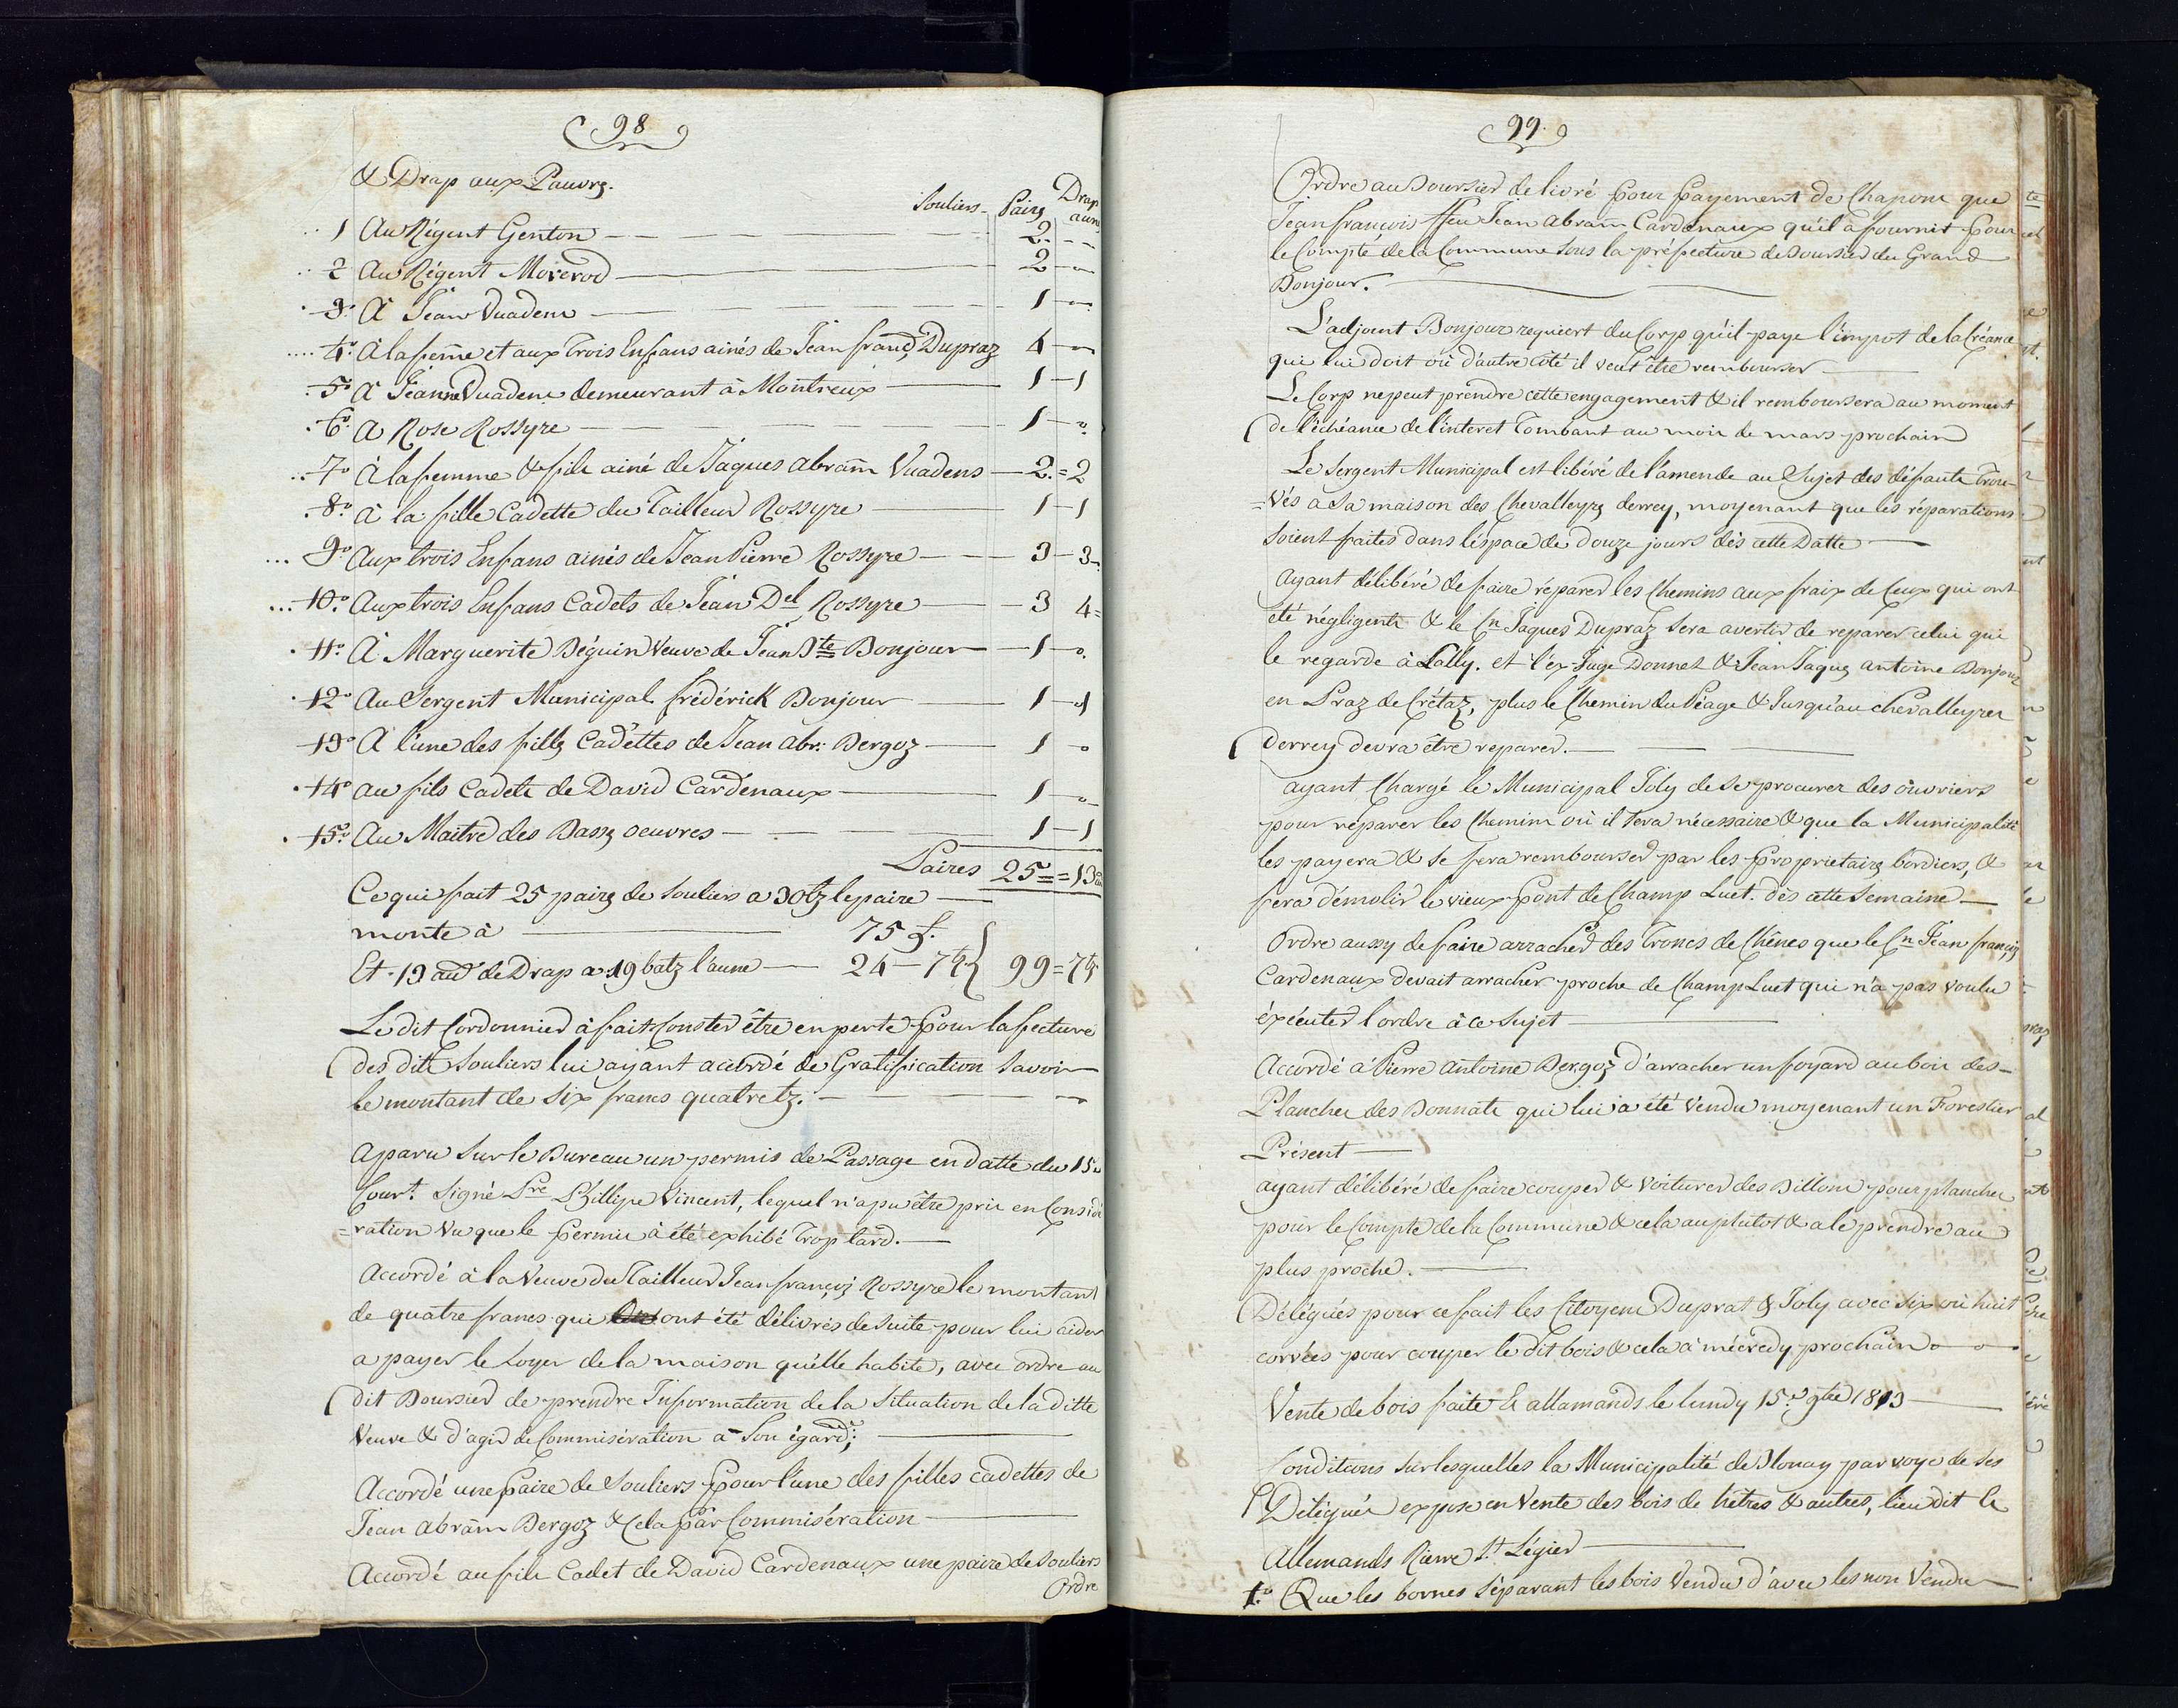 98
& Drap aux Pauvrs.
Souliers - Pairs Drap aune
1 Au Régent Genton — 2 —
2 Au Régent Moverod — 2 —
3.° À Jean Vuadens — 1 —
4.° à la feme et aux trois Enfans ainés de Jean franç. Dupraz 4 —
5.° à Jeanne Vuadens demeurant à Montreux — 1 — 1
6.° à Rose Rossyre — 1 — "
7.° à la femme & fils ainé de Jaques abram Vuadens — 2 = 2
8.° à la fille Cadette du Tailleur Rossyre — 1 — 1
9.° Aux trois Enfans ainés de Jean Pierre Rossyre — 3 — 3
10.° Aux trois Enfans Cadets de Jean Del Rossyre — 3 4=
11.° À Marguerite Béguin Veuve de Jean Bte Bonjour — 1 — "
12.° Au Sergent Municipal frédérick Bonjour — 1 — 1
13.° À l'une des fills Cadettes de Jean Abr: Bergoz — 1 — "
14.° au fils Cadets de David Cardenaux — 1 — "
15.° Au Maitre des Basss oeuvres — 1 — 1
Paires 25 = = 13
Ce qui fait 25 pairs de Souliers a 30 btz le paire —
monte à — 75 £.
Et 13 au.s de Drap a 19 batz l'aune — 24 — 7½ } 99 = 7½
Le dit Cordonnier à fait Conster être en perte pour la fecture
des dits Souliers lui ayant accordé de Gratification Savoir
le montant de Six francs quatre btz. —
aparu Sur le Bureau un permis de Passage en datte du 15.e
Cour.t Signé Pre Phillipe Vincent, lequel n'a pu être pris en Considé
=ration Vu que le permis à été exhibé Trop tard. —
accordé à la Veuve du Tailleur Jean françois Rossyre le montant
de quatre francs qui ont été délivrés de Suite pour lui aider
a payer le Loyer de la maison qu'elle habite, avec ordre au
dit Boursier de prendre Information de la Situation de la ditte
Veuve & d'agir de Commisération a Son égard; —
Accordé une paire de Souliers pour l'une des filles cadettes de
Jean abram Bergoz & Cela par Commisération —
Accordé au fils Cadet de David Cardenaux une paire de Souliers
Ordre
99.
Ordre au Boursier de livré pour payement de Chapons que
Jean françois ffeu Jean Abram Cardenaux qu'il à fournit pour
le Compte de la Commune Sous la préfecture de Boursier du Grand
Bonjour. —
L'adjoint Bonjour requiert du Corp qu'il paye l'impot de la Créance
qui lui doit où d'autre côté il veut être rembourser —
Le Corp ne peut prendre cette engagement & il remboursera au moment
de l'échéance de l'interet Tombant au mois de mars prochain
Le Sergent Municipal est libéré de l'amende au Sujet des défauts Trou-
=vés a Sa maison des Chevalleyrs derrey, moyenant que les réparations
Soient faites dans l'espace de douze jours dès cette Datte —
Ayant délibéré de faire réparer les Chemins aux fraix de Ceux qui ont
été négligents & le Cn Jaques Dupraz Sera avertir de reparer celui qui
le regarde à Lally. et l'ex-Juge Bonnet & Jean Jaques Antoine Bonjour
en Praz de Crétaz, plus le Chemin du Péage & Jusqu'au chevalleyres
Derrey devra être reparer. —
ayant Chargé le Municipal Joly de Se procurer des ouvriers
pour réparer les Chemins où il Sera nécessaire & que la Municipalité
les payera & Se fera rembourser par les proprietairs bordiers, &
fera démolir le vieux pont de Champ Luet. dès cette Semaine —
Ordre aussy de faire arracher des Troncs de Chênes que le Cn Jean françois
Cardenaux devait arracher proche de Champ Luet qui n'a pas voulu
éxécuter l'ordre à ce Sujet —
Accordé à Pierre antoine Bergoz d'arracher un foyard au bois des-
Planches des Bonnats qui lui a été Vendu moyenant un Forestier
Présent —
ayant délibéré de faire couper & voiturer des Billons pour planches
pour le Compte de la Commune & cela au plutot & a le prendre au
plus proche. —
Délégués pour ce fait les Citoyens Duprat & Joly avec Six où huit
corvées pour couper le dit bois & cela à mécredy prochain —
Vente de bois faite Es allamands le lundy 15.e 9bre 1813 —
Conditions Sur lesquelles la Municipalité de Blonay par voye de Ses
Délégués expose en Vente des bois de hêtres & autres, lieu dit Es
Allemands Rierre St Légier —
1.° Que les bornes Séparant les bois Vendu d'avec les non Vendu